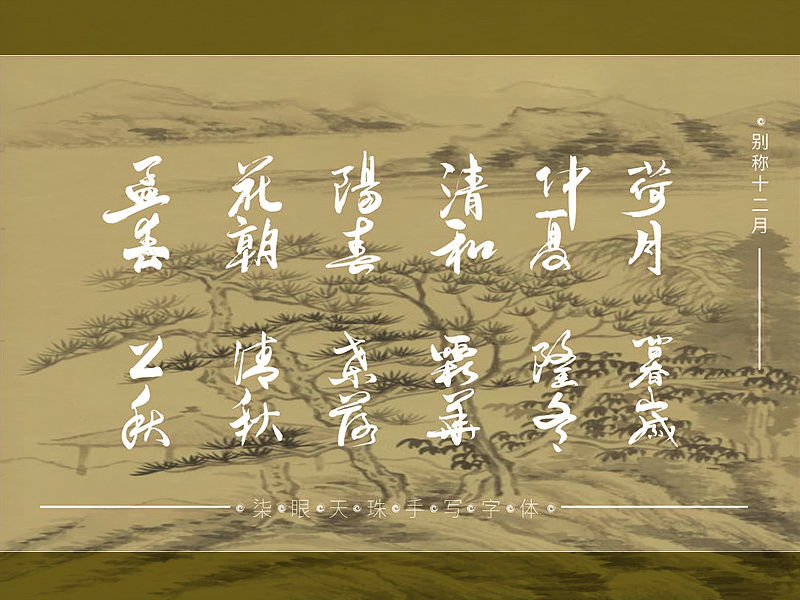 孟春
花朝
陽春
清和
仲夏
荷月
兰秋
清秋
桑落
霜華
隆冬
暮歲
别称十二月
柒眼天珠手写字体